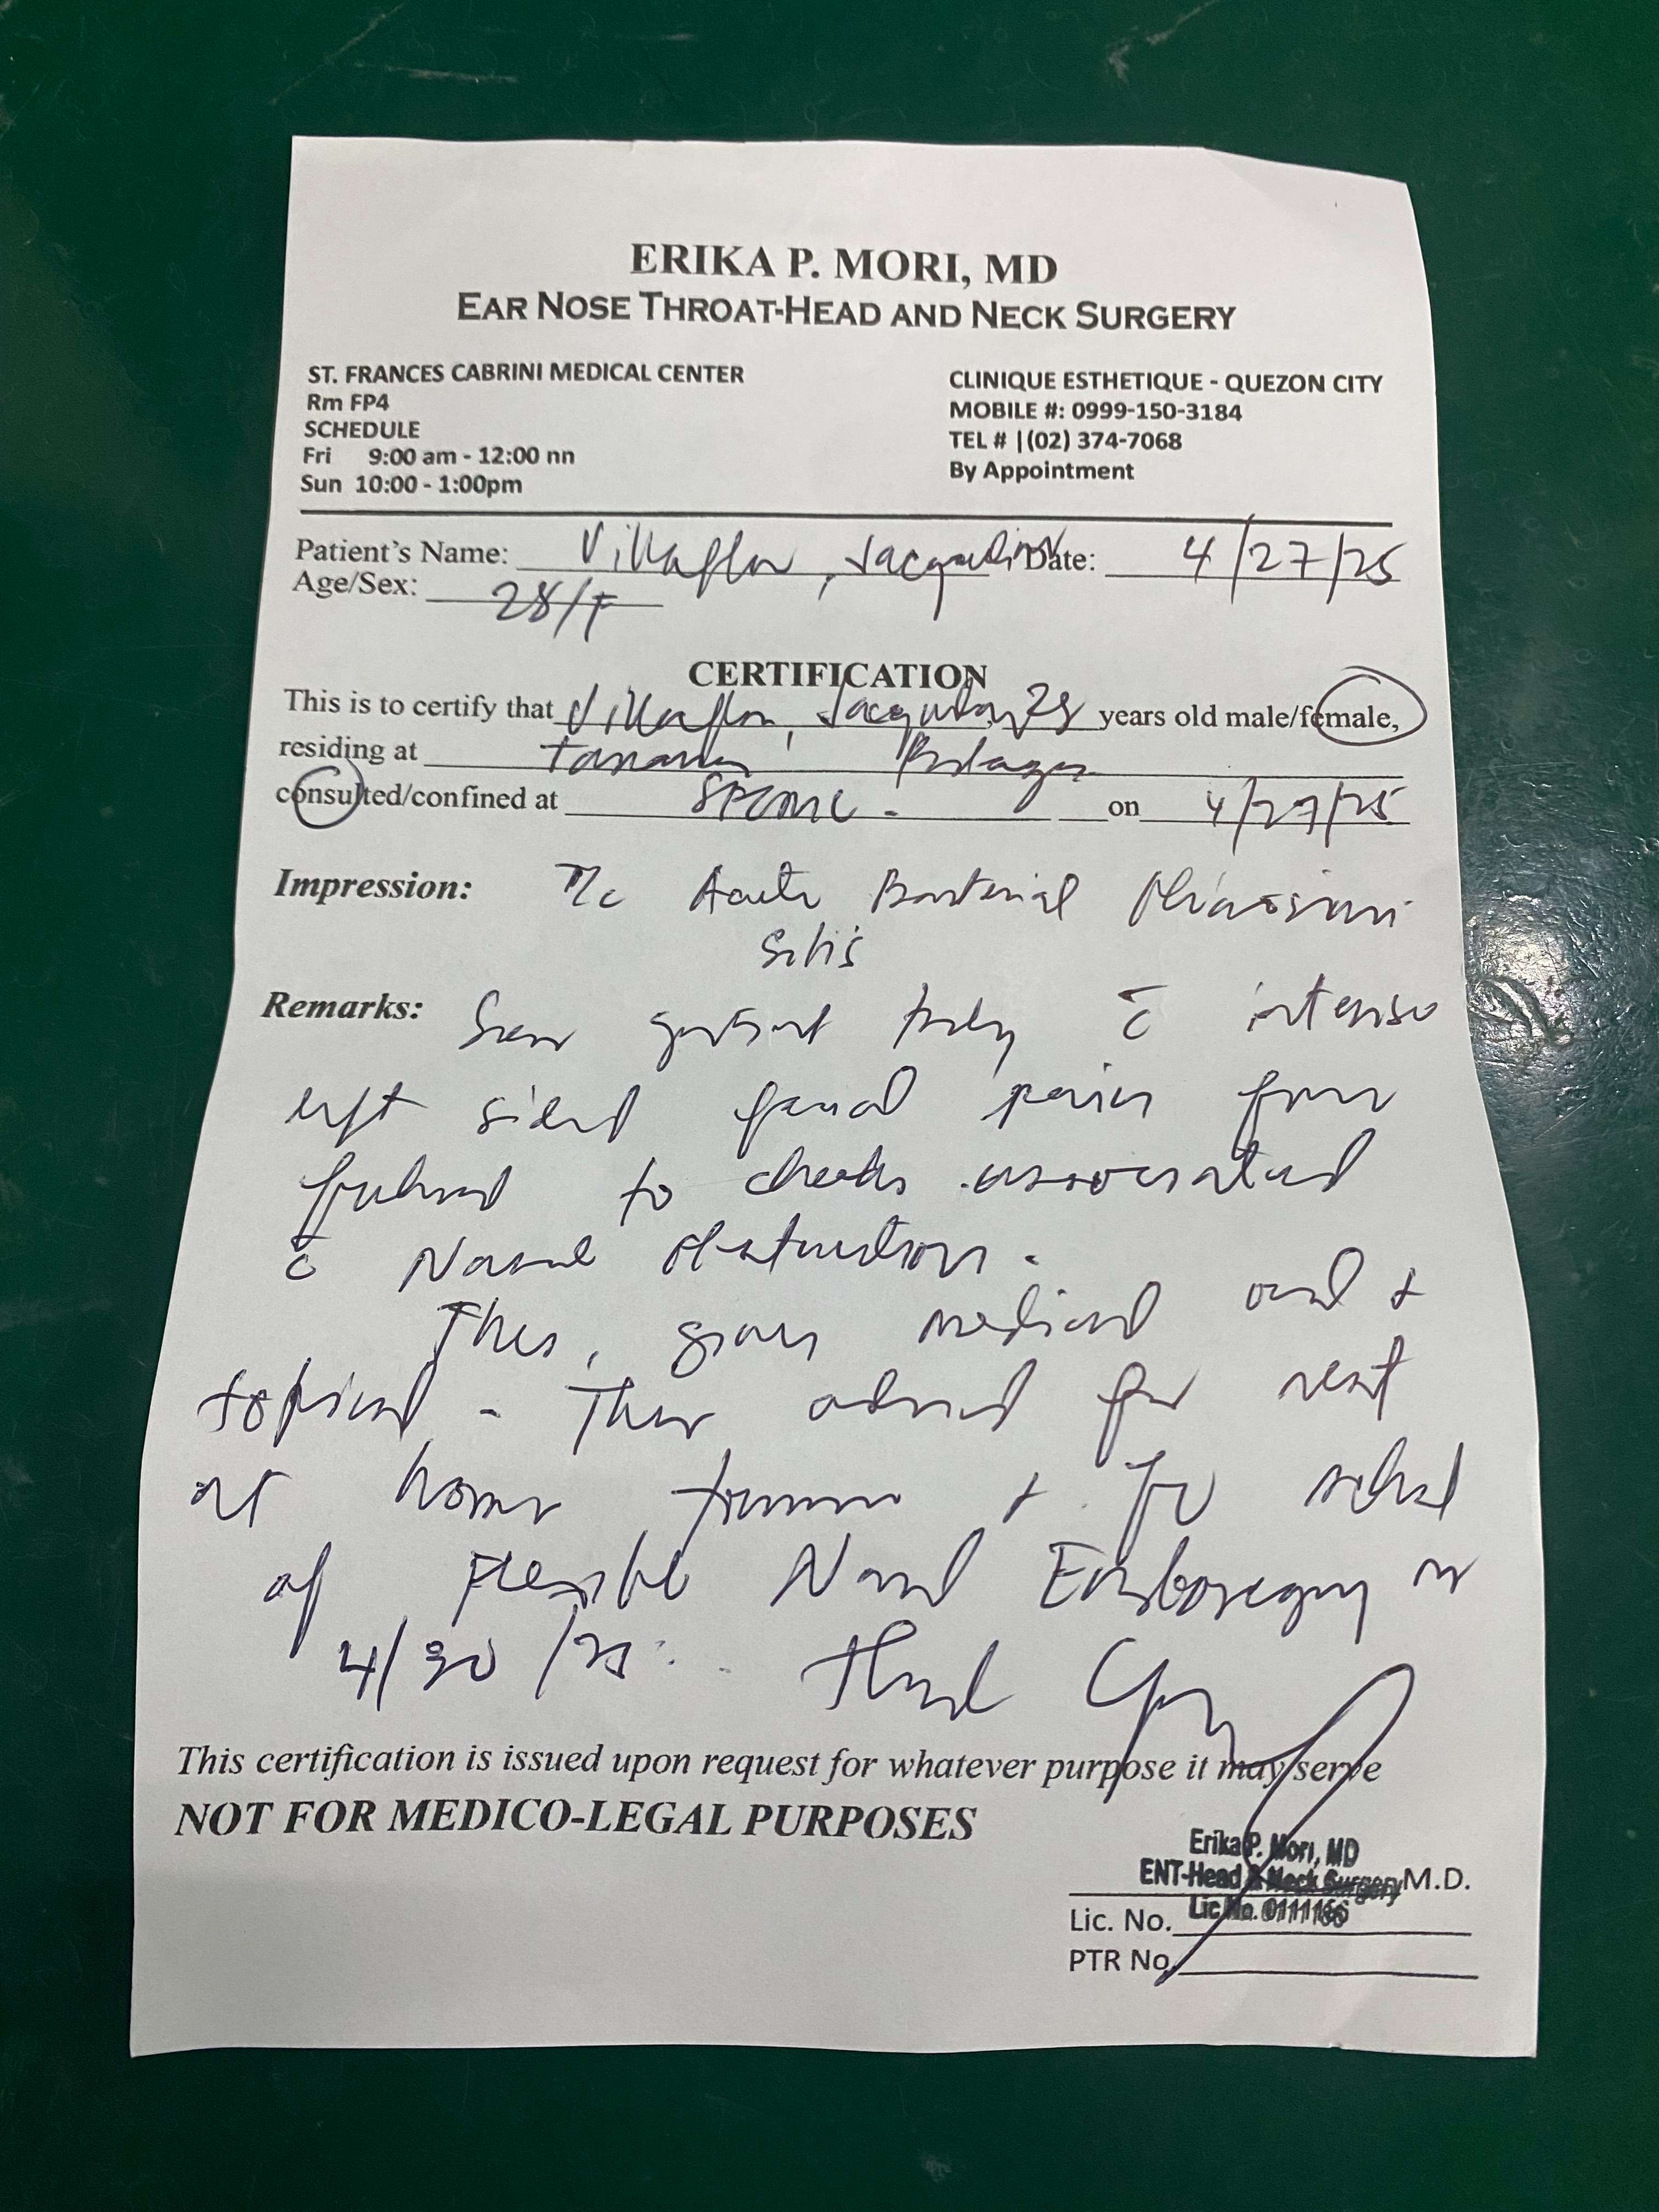 ERIKA P. MORI, MD
EAR NOSE THROAT-HEAD AND NECK SURGERY
ST. FRANCES CABRINI MEDICAL CENTER
Rm FP4
SCHEDULE
Fri 9:00 am - 12:00 nn
Sun 10:00 - 1:00pm
CLINIQUE ESTHETIQUE - QUEZON CITY
MOBILE #: 0999-150-3184
TEL # |(02) 374-7068
By Appointment
Patient's Name: Villaflor, Date: 4/27/25
Age/Sex: 28/F
CERTIFICATION
This is to certify that Villaflor, 28 years old male/female,
residing at
consulted/confined at SFCMC - on 4/27/25
Impression: T/c Acute Bacterial Rhinosinu
sitis
Remarks: Seen patient today c̄ intense
left sided facial pain from
forehead to cheeks associated
c̄ Nasal obstruction.
Thus, given medical oral +
topical - Thus advised for rest
at home tomorrow + for sched
of Flexible Nasal Endoscopy on
4/30/25. Thank you
This certification is issued upon request for whatever purpose it may serve
NOT FOR MEDICO-LEGAL PURPOSES
Erika P. Mori, MD
ENT-Head & Neck Surgery M.D.
Lic. No. Lic No.
PTR No.